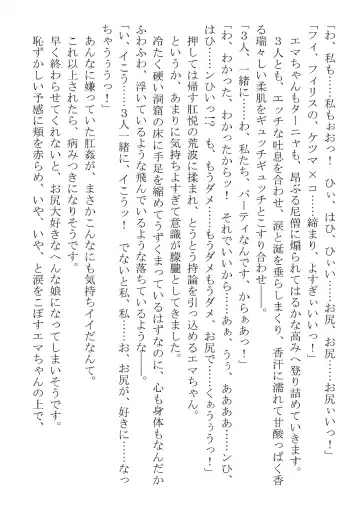 「わ、私も……私もぉおっ！　ひぃ、はひ、ひぃ……お尻、お尻……お尻ぃいっ！」
「フィ、フィリスの、ケツマ×コ……締まり、よすぎぃいいっ！」
エマちゃんもターニャも、昂ぶる尼僧に煽られてはるかな高みへ登り詰めていきます。
３人とも、エッチな吐息を合わせ、涙と涎を垂らしまくり、香汗に濡れて甘酸っぱく香
る瑞々しい柔肌をギュッチギュッチとこすり合わせ――。
「３人、一緒に……わ、私たち、パーティなんです、からぁぁっ！」
「わ、わかった、わかったからッ！　それでいいから……あぁ、うぅ、ああああ……ンひ、
はひ……ンひぃっ!?　も、もうダメ……もうダメもうダメ、お尻で……くぁぅぅうっ！」
押しては帰す肛悦の荒波に揉まれ、とうとう持論を引っ込めるエマちゃん。
というか、あまりに気持ちよすぎて意識が朦朧としてきました。
冷たく硬い洞窟の床に手足を縮めてうずくまっているはずなのに、心も身体もなんだか
ふわふわ、浮いているような飛んでいるような落ちているような――。
「い、イこう……３人一緒に、イこうッ！　でないと私、私……お、お尻が、好きに……なっ
ちゃうぅうっ！」
あんなに嫌っていた肛姦が、まさかこんなにも気持ちイイだなんて。
これ以上されたら、病みつきになりそうです。
早く終わらせてくれないと、お尻大好きなへんな娘になってしまいそうです。
恥ずかしい予感に頬を赤らめ、いや、いや、と涙をこぼすエマちゃんの上で、